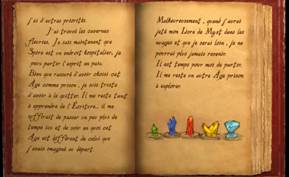 j'ai d'autres priorités.
J'ai trouvé les cavernes
fleuries. Je sais maintenant que
Spire est un endroit hospitalier, je
peux partir l'esprit en paix.
Bien que rassuré d'avoir choisi cet
Âge comme prison, je suis triste
d'avoir à le quitter. Il me reste tant
à apprendre de l'Écriture, il me
suffirait de passer un peu plus de
temps ici et de voir en quoi cet
Âge est différent de celui que
j'avais imaginé au départ.
Malheureusement, quand j'aurai
jeté mon Livre de Myst dans les
nuages et que je serai loin, je ne
pourrai plus jamais revenir.
Il est temps pour moi de partir.
Il me reste un autre Âge prison
à explorer.